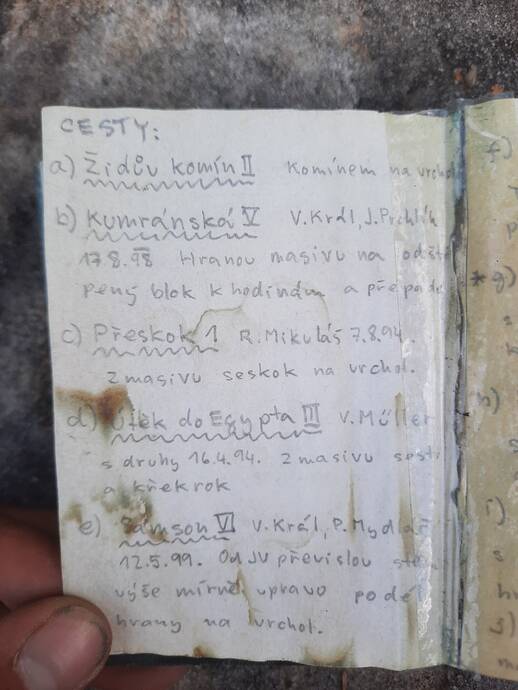 CESTY:
a) Židův komín II Komínem na vrchol
b) Kumránská V V. Král, J. Prchlík
17.8.98 Hranou masivu na odště
pený blok k hodinám a přepade
c) Přeskok 1 R. Mikuláš 7.8.94.
Z masivu seskok na vrchol.
d) Útěk do Egypta III V. Müller
s druhy 16.4.94. Z masivu
a
e) Samson VI V. Král, P. Mydlář
12.5.99. Od JV převislou
výše mírně vpravo podél
hrany na vrchol.
f)
*g)
s
h)
s
i)
s
j)